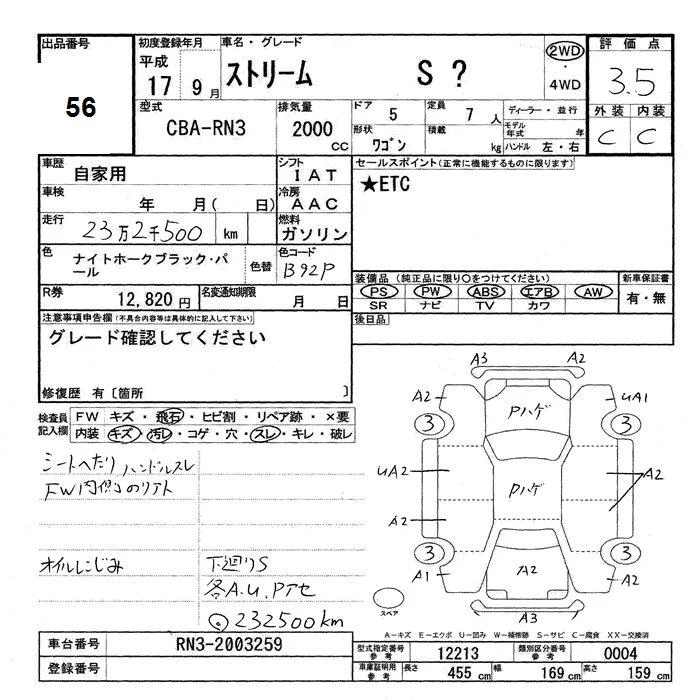 出品番号
56
初度登録年月
平成
17 9月
車名・グレード
ストリーム S ?
2WD
・
4WD
評価点
3.5
外装 内装
C C
型式
CBA-RN3
排気量
2000
cc
ドア 5
定員 7 人
形状
ワゴン
積載 kg
ディーラー・並行
モデル
年式 年
ハンドル 左・右
車歴
自家用
シフト
IAT
車検
年 月( 日)
冷房
AAC
走行
23万2千500 km
燃料
ガソリン
色
ナイトホークブラック・パ
ール
色替
色コード
B92P
R券
12,820円
名変通知期限
月 日
セールスポイント(正常に機能するものに限ります)
★ETC
装備品 (純正品に限り○をつけてください)
PS PW ABS エアB AW
SR ナビ TV カワ
新車保証書
有・無
後日品
注意事項申告欄(不具合内容等は具体的に記入して下さい)
グレード確認してください
修復歴 有〔箇所 〕
検査員
記入欄
FW キズ・飛石・ヒビ割・リペア跡・×要
内装 キズ・汚レ・コゲ・穴・スレ・キレ・破レ
シートへたり ハンドルスレ
FW内側のリアト
オイルにじみ
下廻りS
各A.U.Pアセ
232500km
A3 A2
A2 UA1
Pハゲ
3 3
UA2 Pハゲ A2
A2
3 3
A1 A2 A2
A3
スペア
A-キズ E-エクボ U-凹み W-補修跡 S-サビ C-腐食 XX-交換済
車台番号
RN3-2003259
登録番号
型式指定番号
参考
12213
類別区分番号
参考
0004
車庫証明用
参考
長さ 455 cm 幅 169 cm 高さ 159 cm